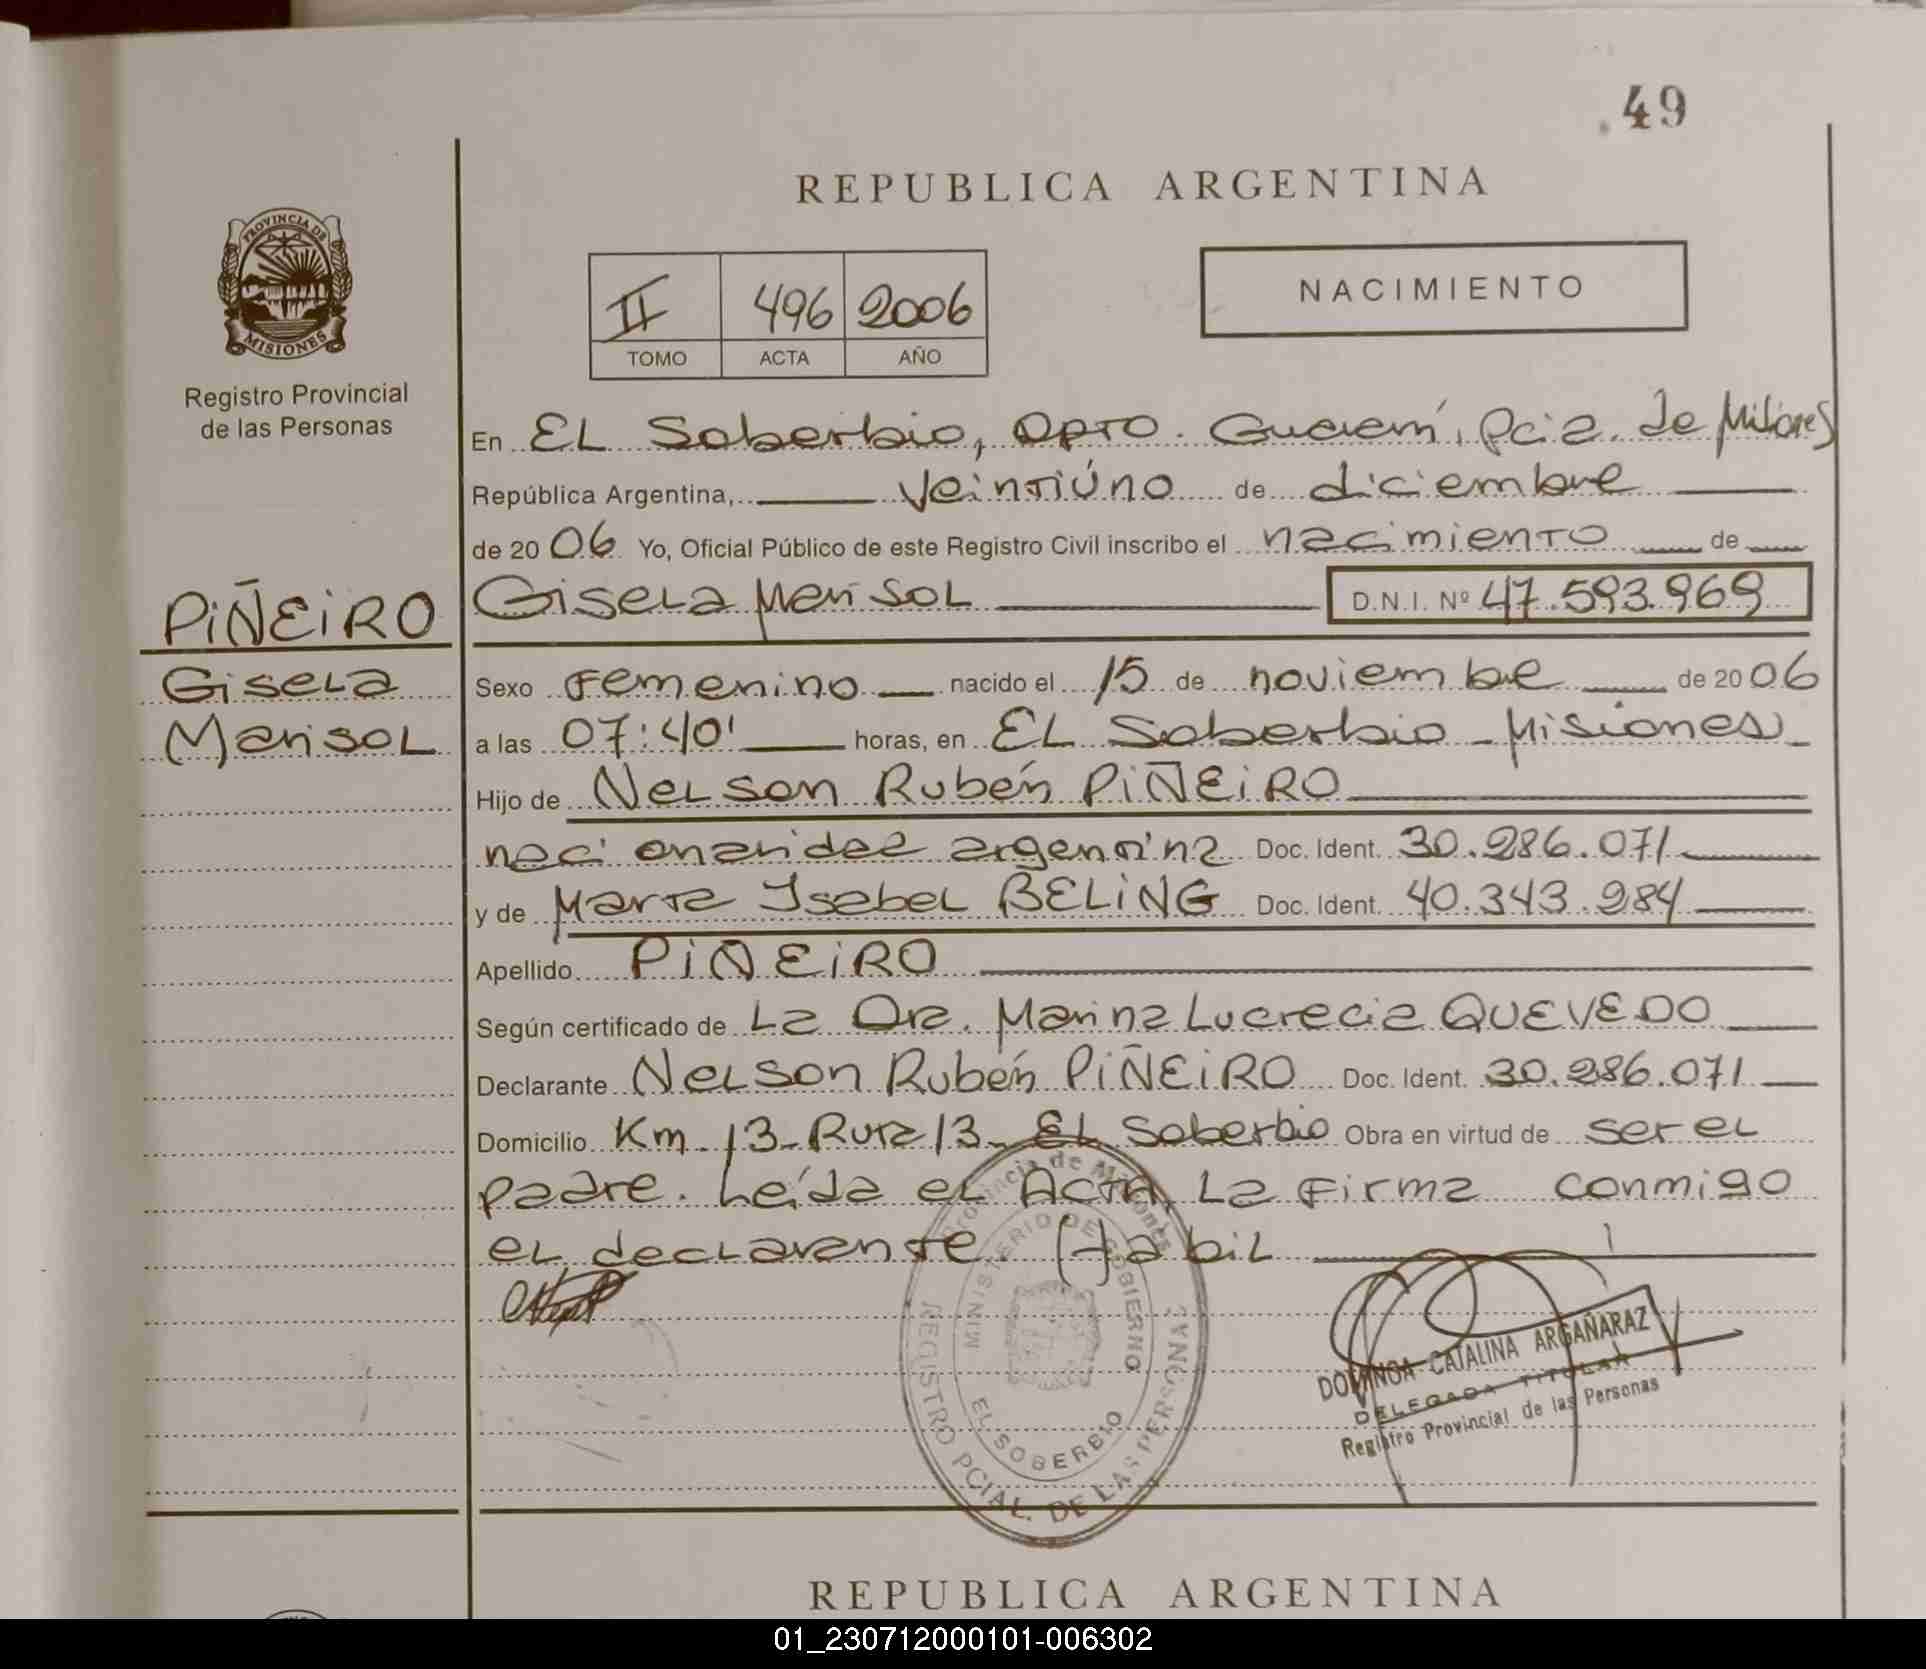 49
REPUBLICA ARGENTINA
PROVINCIA DE
MISIONES
Registro Provincial
de las Personas
II 496 2006
TOMO ACTA AÑO
NACIMIENTO
En EL Soberbio, DPTO. Guaraní, Pcia. de Misiones
República Argentina, veintiúno de diciembre
de 2006 Yo, Oficial Público de este Registro Civil inscribo el nacimiento de
PIÑEIRO
Gisela
Marisol
Gisela Marisol D.N.I. Nº 47.593.969
Sexo Femenino nacido el 15 de noviembre de 2006
a las 07:40' horas, en EL Soberbio - Misiones -
Hijo de Nelson Rubén PIÑEIRO
nacionalidad argentina Doc. Ident. 30.286.071
y de Marta Isabel BELING Doc. Ident. 40.343.284
Apellido PIÑEIRO
Según certificado de La Dra. Marina Lucrecia QUEVEDO
Declarante Nelson Rubén PIÑEIRO Doc. Ident. 30.286.071
Domicilio Km. 13 - Ruta 13 - EL Soberbio Obra en virtud de ser el
padre. Leída el Acta La Firma conmigo
el declarante Habil
Provincia de Misiones
MINISTERIO DE GOBIERNO
EL SOBERBIO
REGISTRO PCIAL. DE LAS PERSONAS
DOMINGA CATALINA ARGAÑARAZ
DELEGADA TITULAR
Registro Provincial de las Personas
REPUBLICA ARGENTINA
01_230712000101-006302